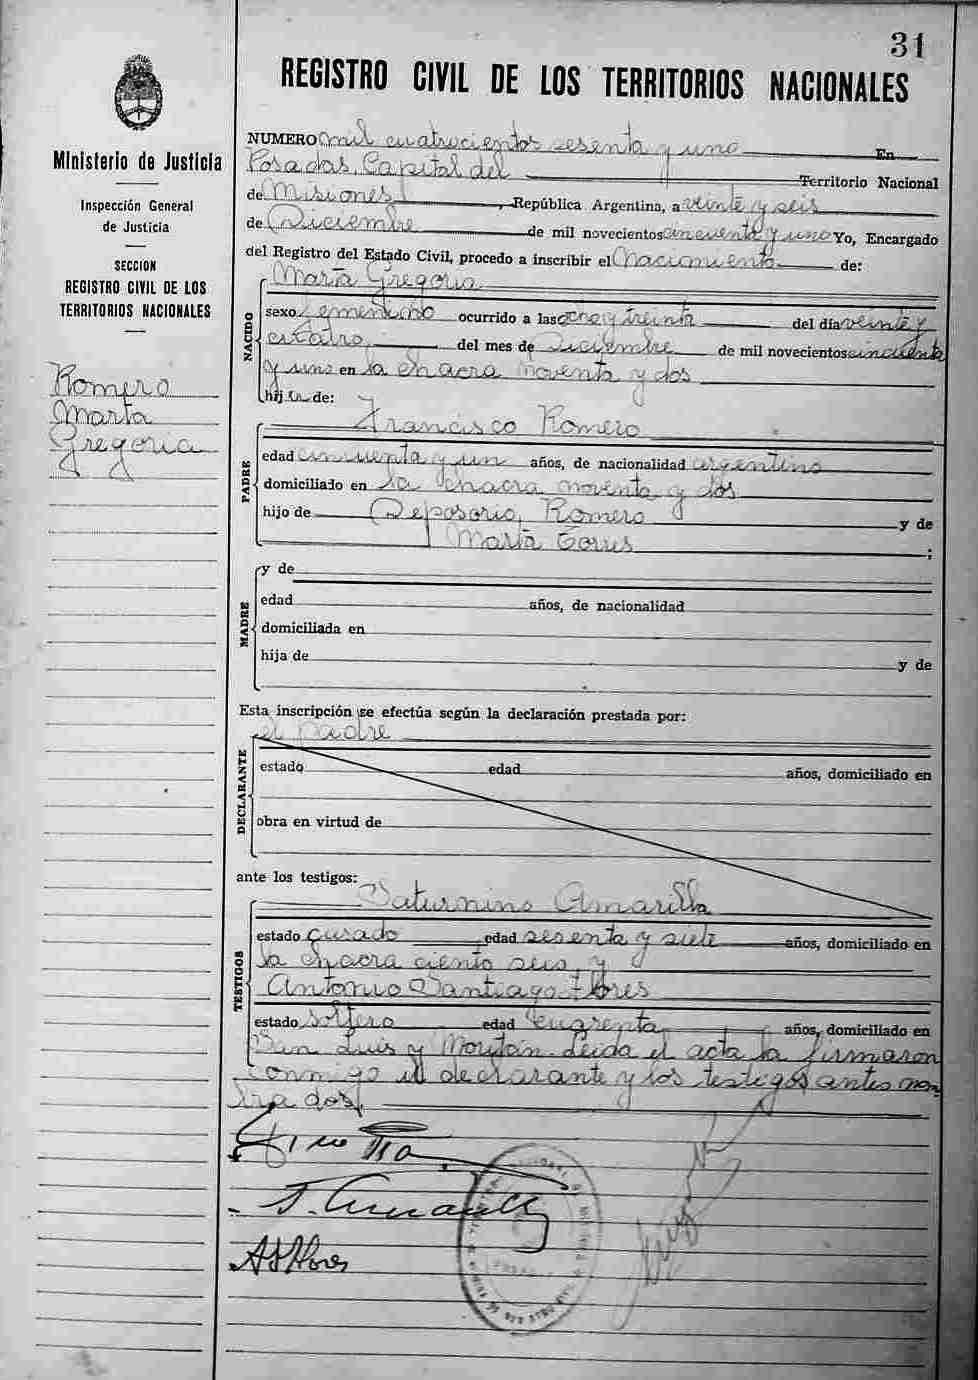 31
REGISTRO CIVIL DE LOS TERRITORIOS NACIONALES
Ministerio de Justicia
Inspección General
de Justicia
SECCION
REGISTRO CIVIL DE LOS
TERRITORIOS NACIONALES
Romero
Marta
Gregoria
NUMERO mil cuatrocientos sesenta y uno En
Posadas, Capital del Territorio Nacional
de Misiones, República Argentina, a veinte y seis
de Diciembre de mil novecientos cincuenta y uno Yo, Encargado
del Registro del Estado Civil, procedo a inscribir el Nacimiento de:
NACIDO
Marta Gregoria
sexo femenino ocurrido a las ocho y treinta del día veinte y
cuatro del mes de Diciembre de mil novecientos cincuenta
y uno en la chacra noventa y dos
hija de:
PADRE
Francisco Romero
edad cincuenta y un años, de nacionalidad argentino
domiciliado en la chacra noventa y dos
hijo de Romero y de
Marta Torres ;
MADRE
y de
edad años, de nacionalidad
domiciliada en
hija de y de
Esta inscripción se efectúa según la declaración prestada por:
el padre
DECLARANTE
estado edad años, domiciliado en
obra en virtud de
ante los testigos:
TESTIGOS
Saturnino Amarilla
estado casado edad sesenta y siete años, domiciliado en
la chacra ciento seis, y
Antonio Santiago Flores
estado soltero edad cuarenta años, domiciliado en
San Luis y Leida el acta la firmaron
conmigo el declarante y los testigos antes nom
trados.